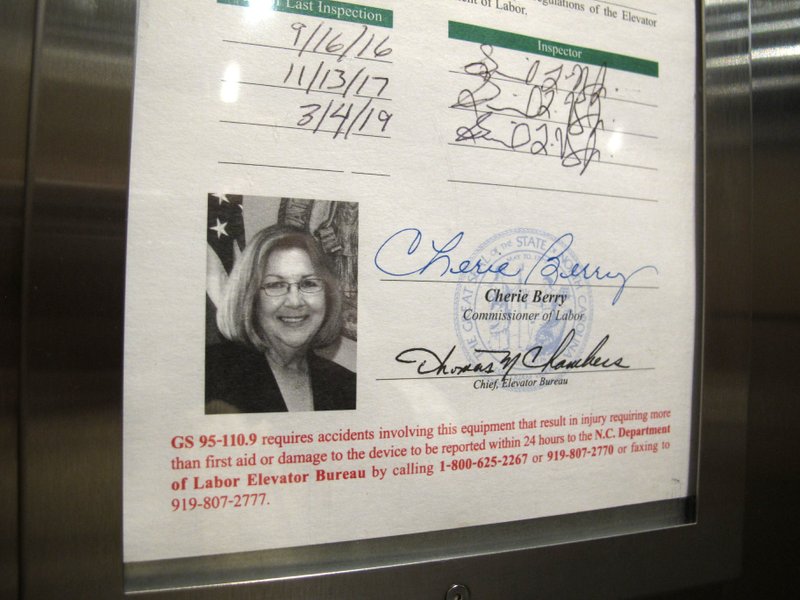 Regulations of the Elevator
of Labor.
Last Inspection
Inspector
9/16/16
11/13/17
3/4/19
Cherie Berry
Cherie Berry
Commissioner of Labor
Thomas N Chambers
Chief, Elevator Bureau
GS 95-110.9 requires accidents involving this equipment that result in injury requiring more
than first aid or damage to the device to be reported within 24 hours to the N.C. Department
of Labor Elevator Bureau by calling 1-800-625-2267 or 919-807-2770 or faxing to
919-807-2777.